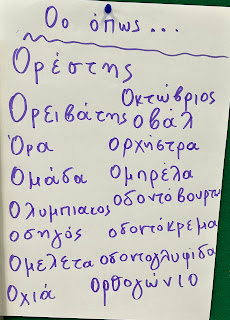 Οο όπως...
Ορέστης
Οκτώβριος
Ορειβάτης οβάλ
Όρα ορχήστρα
Ομάδα Ομπρέλα
Ολυμπιακος οδοντόβουρτσ
οδηγός οδοντόκρεμα
Ομελέτα οδοντογλυφίδα
Οχιά Ορθογώνιο